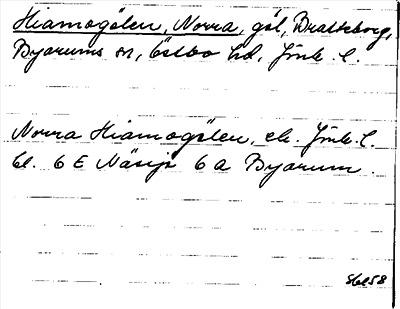 Hiamogölen, Norra, göl, Bratteborg,
Byarums sn, Östbo hd, Jönk. l.
Norra Hiamogölen, ek. Jönk. l.
bl. 6 E Nässjö 6 a Byarum.
Sbl 58